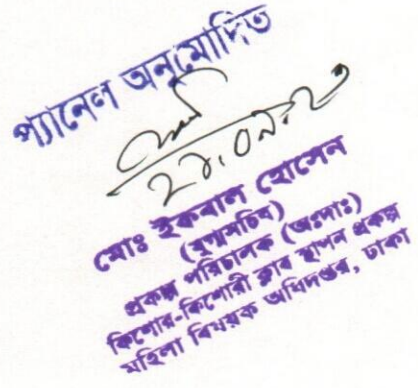 প্যানেল অনুমোদিত
মোঃ ইকবাল হোসেন
(যুগ্মসচিব)
প্রকল্প পরিচালক (অঃদাঃ)
কিশোর-কিশোরী ক্লাব স্থাপন প্রকল্প
মহিলা বিষয়ক অধিদপ্তর, ঢাকা